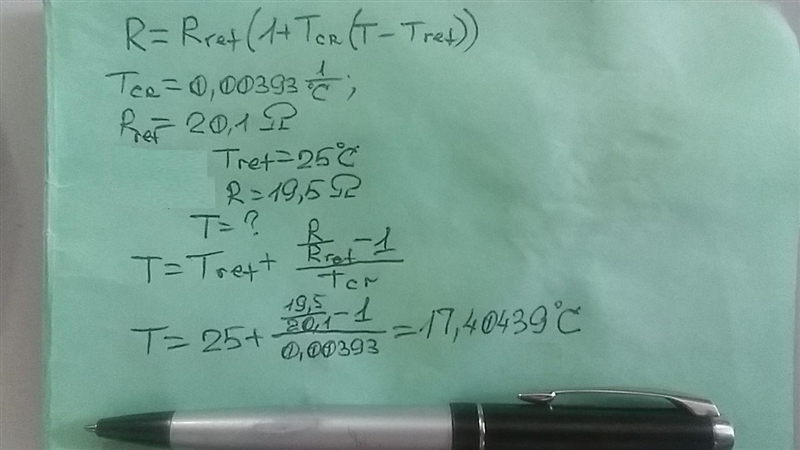 R = Rref(1+TCR(T-Tref))
TCR = 0,00393 1/°C ;
Rref = 20,1 Ω
Tref = 25°C
R = 19,5 Ω
T = ?
T = Tref + (R/Rref - 1)/TCR
T = 25 + (19,5/20,1 - 1)/0,00393 = 17,40439°C